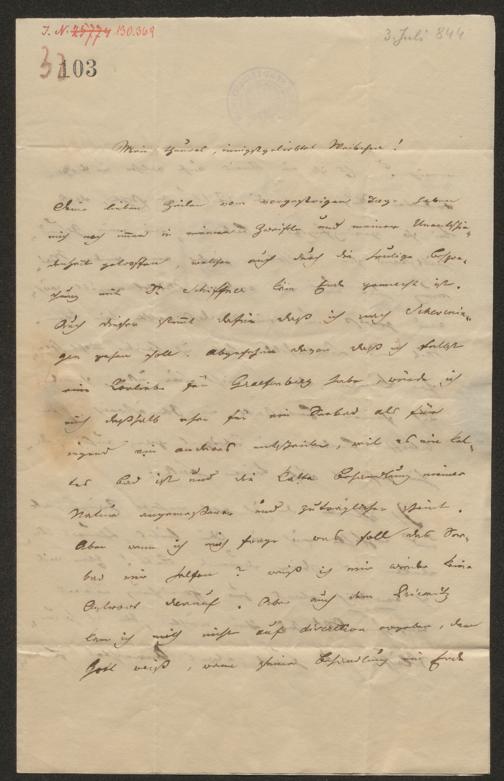 J. N. 25774 130.369
3. Juli 844
32
103
Mein theures, innigstgeliebtes Weibchen!
Deine lieben Zeilen vom vorgestrigen Tage haben
mich noch immer in meinen Zweifeln und meiner Unentschie-
denheit getroffen, welchen auch durch die heutige Bespre-
chung mit Dr Schiffner kein Ende gemacht ist.
Auch dieser stimmt dafür daß ich nach Schevenin-
gen gehen soll. Abgesehen davon daß ich selbst
eine Vorliebe für Graefenberg habe, würde ich
mich deßhalb eher für ein Seebad als für
irgend ein anderes entscheiden, weil es ein kal-
tes Bad ist und die kalte Behandlung meiner
Natur angemessener und zuträglicher scheint.
Aber wenn ich mich frage: was soll das See-
bad mir helfen? weiß ich mir wieder keine
Antwort darauf. Aber auch dem Priesnitz
kann ich mich nicht auf discretion ergeben, denn
Gott weiß, wann seine Behandlung ein Ende